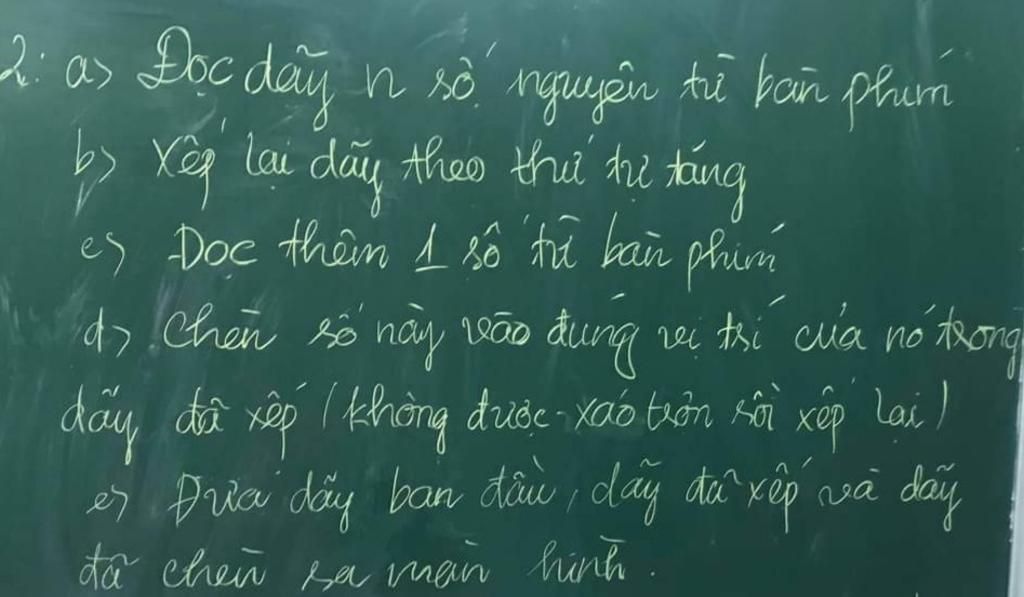 2: a> Đọc dãy n số nguyên từ bàn phím
b> Xếp lại dãy theo thứ tự tăng
c> Đọc thêm 1 số từ bàn phím
d> Chèn số này vào đúng vị trí của nó trong
dãy đã xếp (không được xáo trộn rồi xếp lại)
e> Đưa dãy ban đầu, dãy đã xếp và dãy
đã chèn ra màn hình.